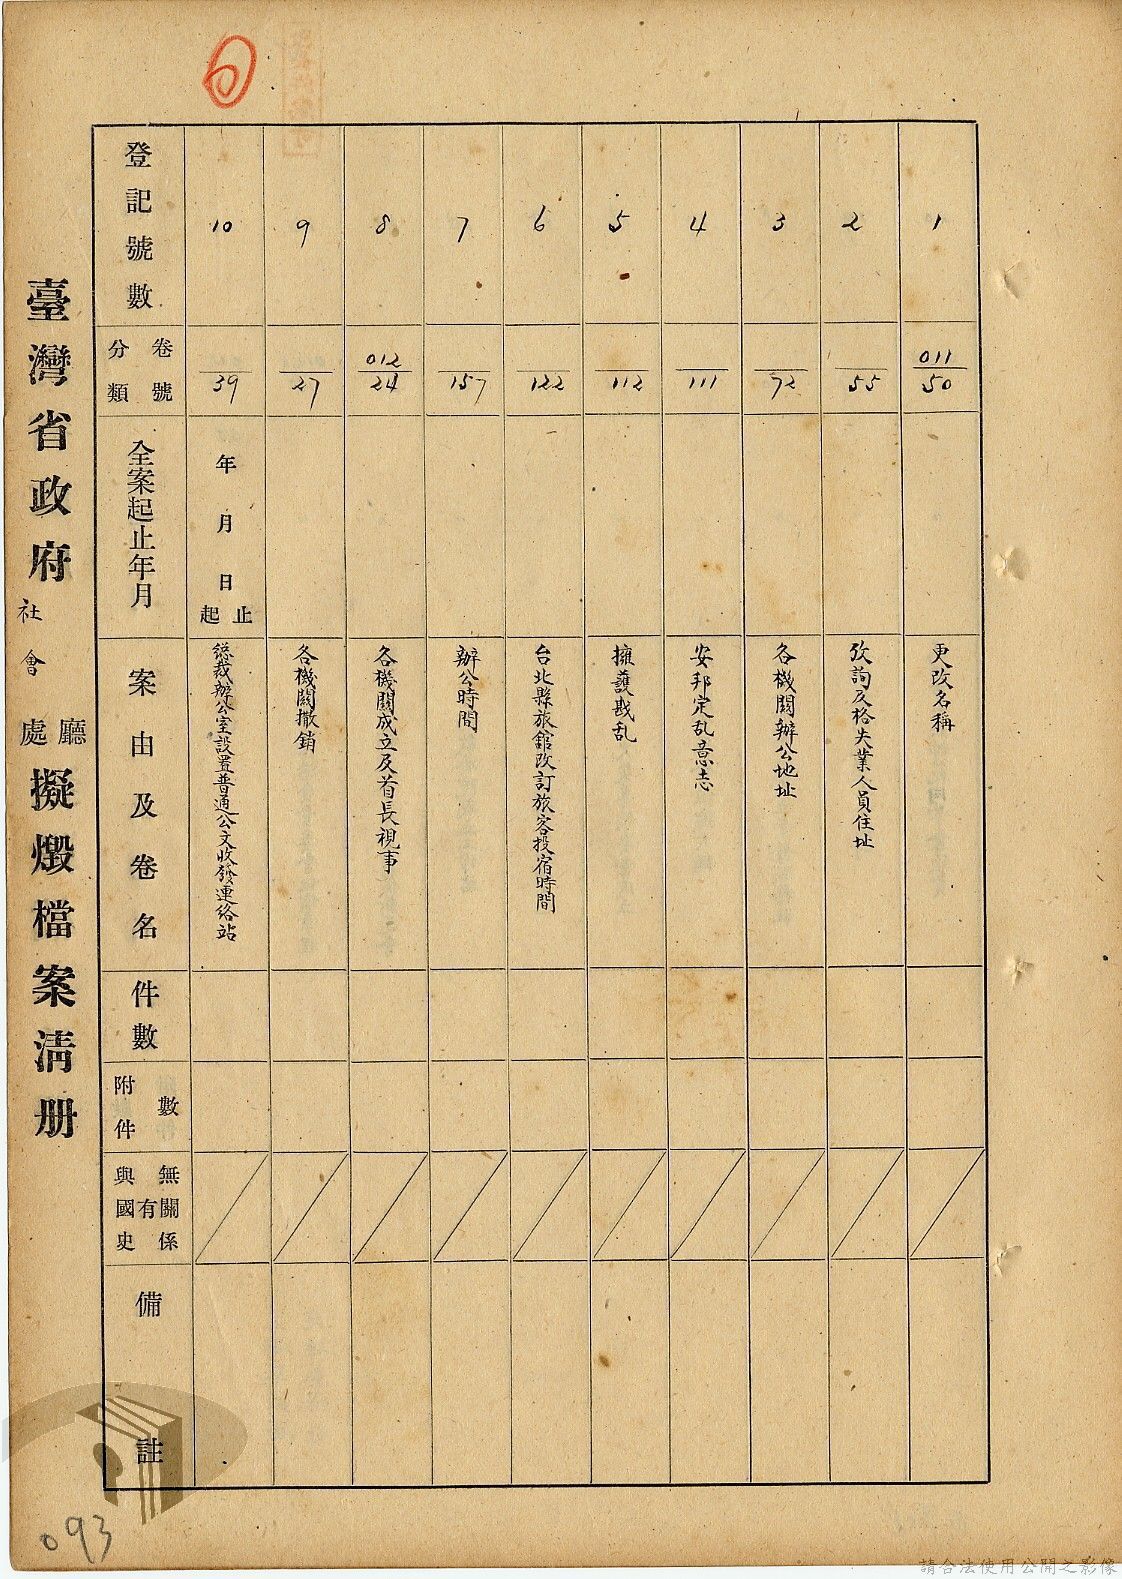 臺灣省政府社會處廳擬燬檔案清册
登記號數
卷號
分類
全案起止年月
案由及卷名
件數
附件數
與國史有無關係
備註
1
011/50
更改名稱
2
55
攷詢及格失業人員住址
3
72
各機關辦公地址
4
111
安邦定乱意志
5
112
擁護戡乱
6
122
台北縣旅舘改訂旅客投宿時間
7
157
辦公時間
8
012/24
各機關成立及首長視事
9
27
各機關撤銷
10
39
年月日起止
總裁辦公室設置普通公文收發連絡站
093
請合法使用公開之影像